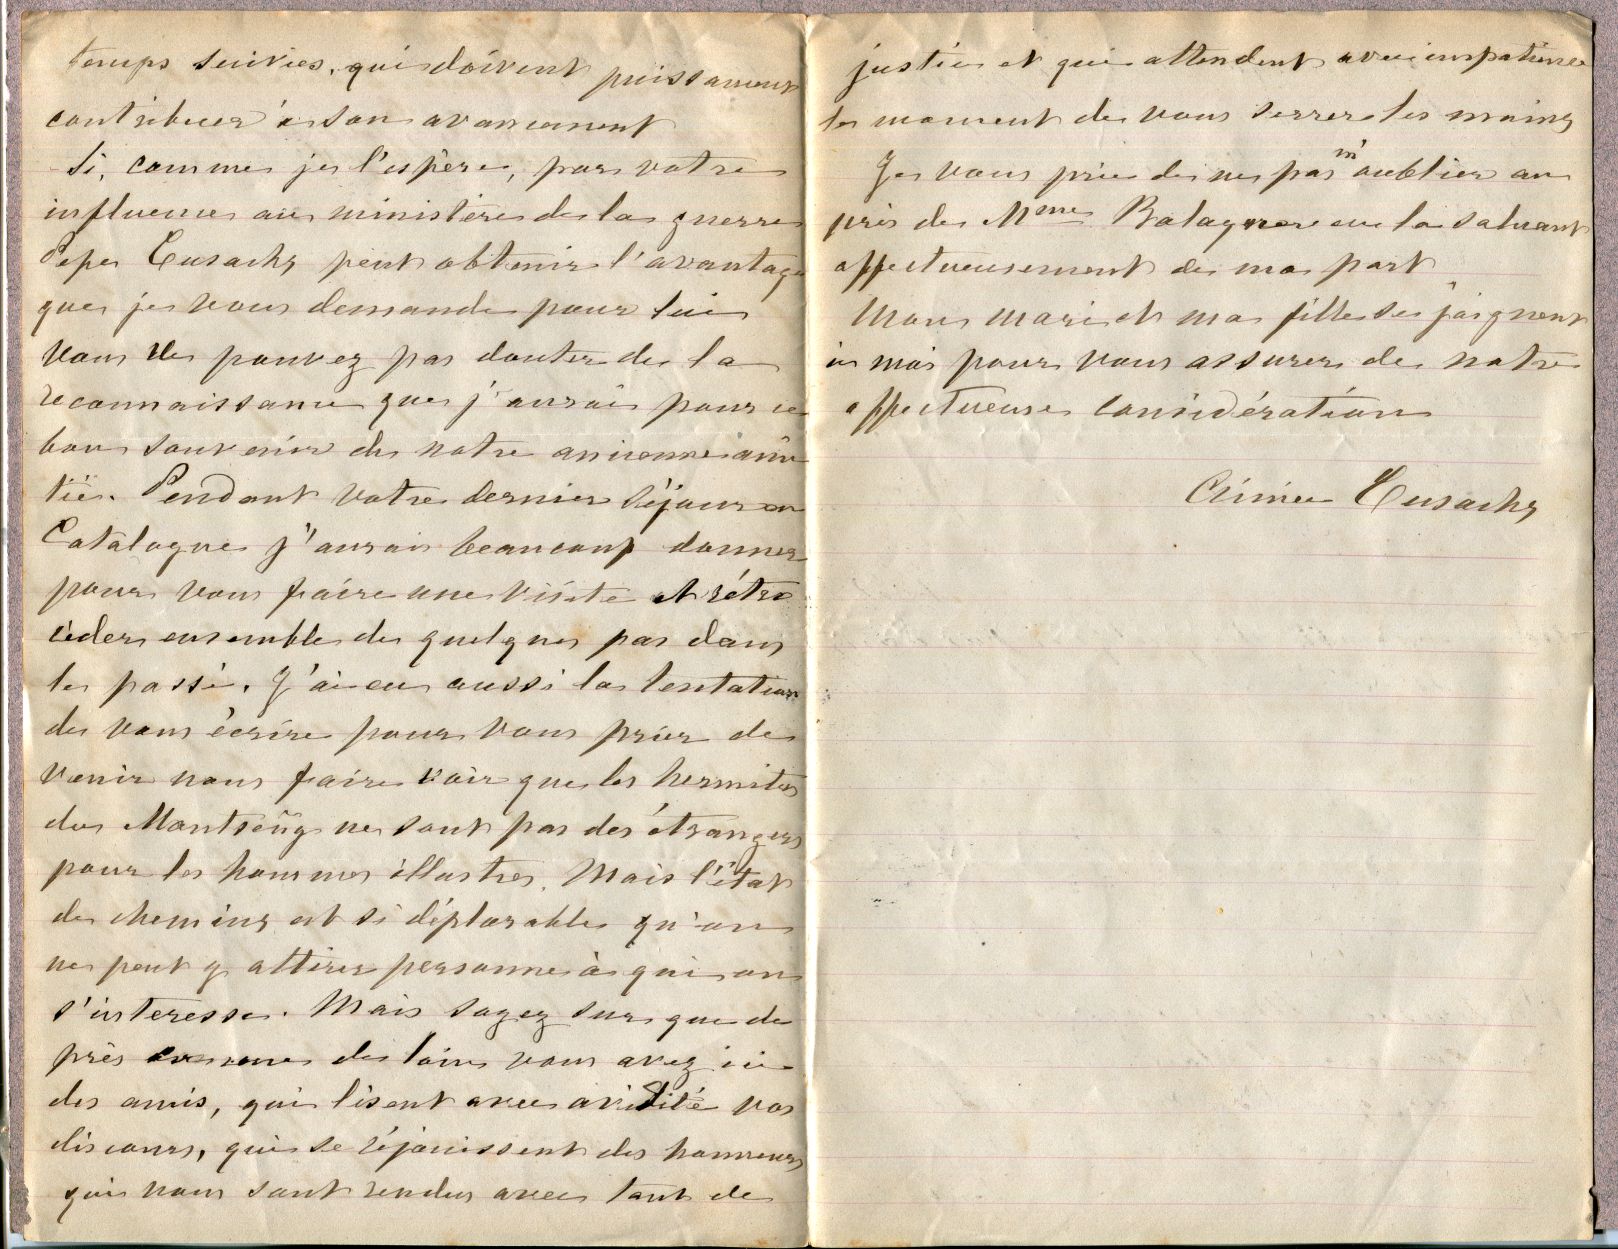 temps suivies, qui doivent puissament
contribuer à son avancement
Si, comme je l'espère, par votre
influence au ministère de la guerre
Pepe Eusachs peut obtenir l'avantage
que je vous demande pour lui
vous ne pouvez pas douter de la
reconnaissance que j'aurai pour ce
bon souvenir de notre ancienne ami
tié. Pendant votre dernier séjour en
Catalogne j'aurais beaucoup donner
pour vous faire une visite et rétro
céder ensemble de quelques pas dans
le passé. J'ai eu aussi la tentation
de vous écrire pour vous prier de
venir nous faire voir que les hermites
du Montseny ne sont pas des étrangers
pour les hommes illustres. Mais l'état
de chemins est si déplorable qu'on
ne peut y attirer personne à qui on
s'interesse. Mais soyez sur que de
près comme de loin vous avez ici
des amis, qui lisent avec avidité vos
discours, qui se réjouissent des honneurs
qui vous sont rendus avec tant de
justice et qui attendent avec impatience
le moment de vous serrer les mains
Je vous prie de ne pas m'oublier au
près de Mme Balaguer en la saluant
affectueusement de ma part
Mon mari et ma fille se joignent
à moi pour vous assurer de notre
affectueuse considération
Eusachs